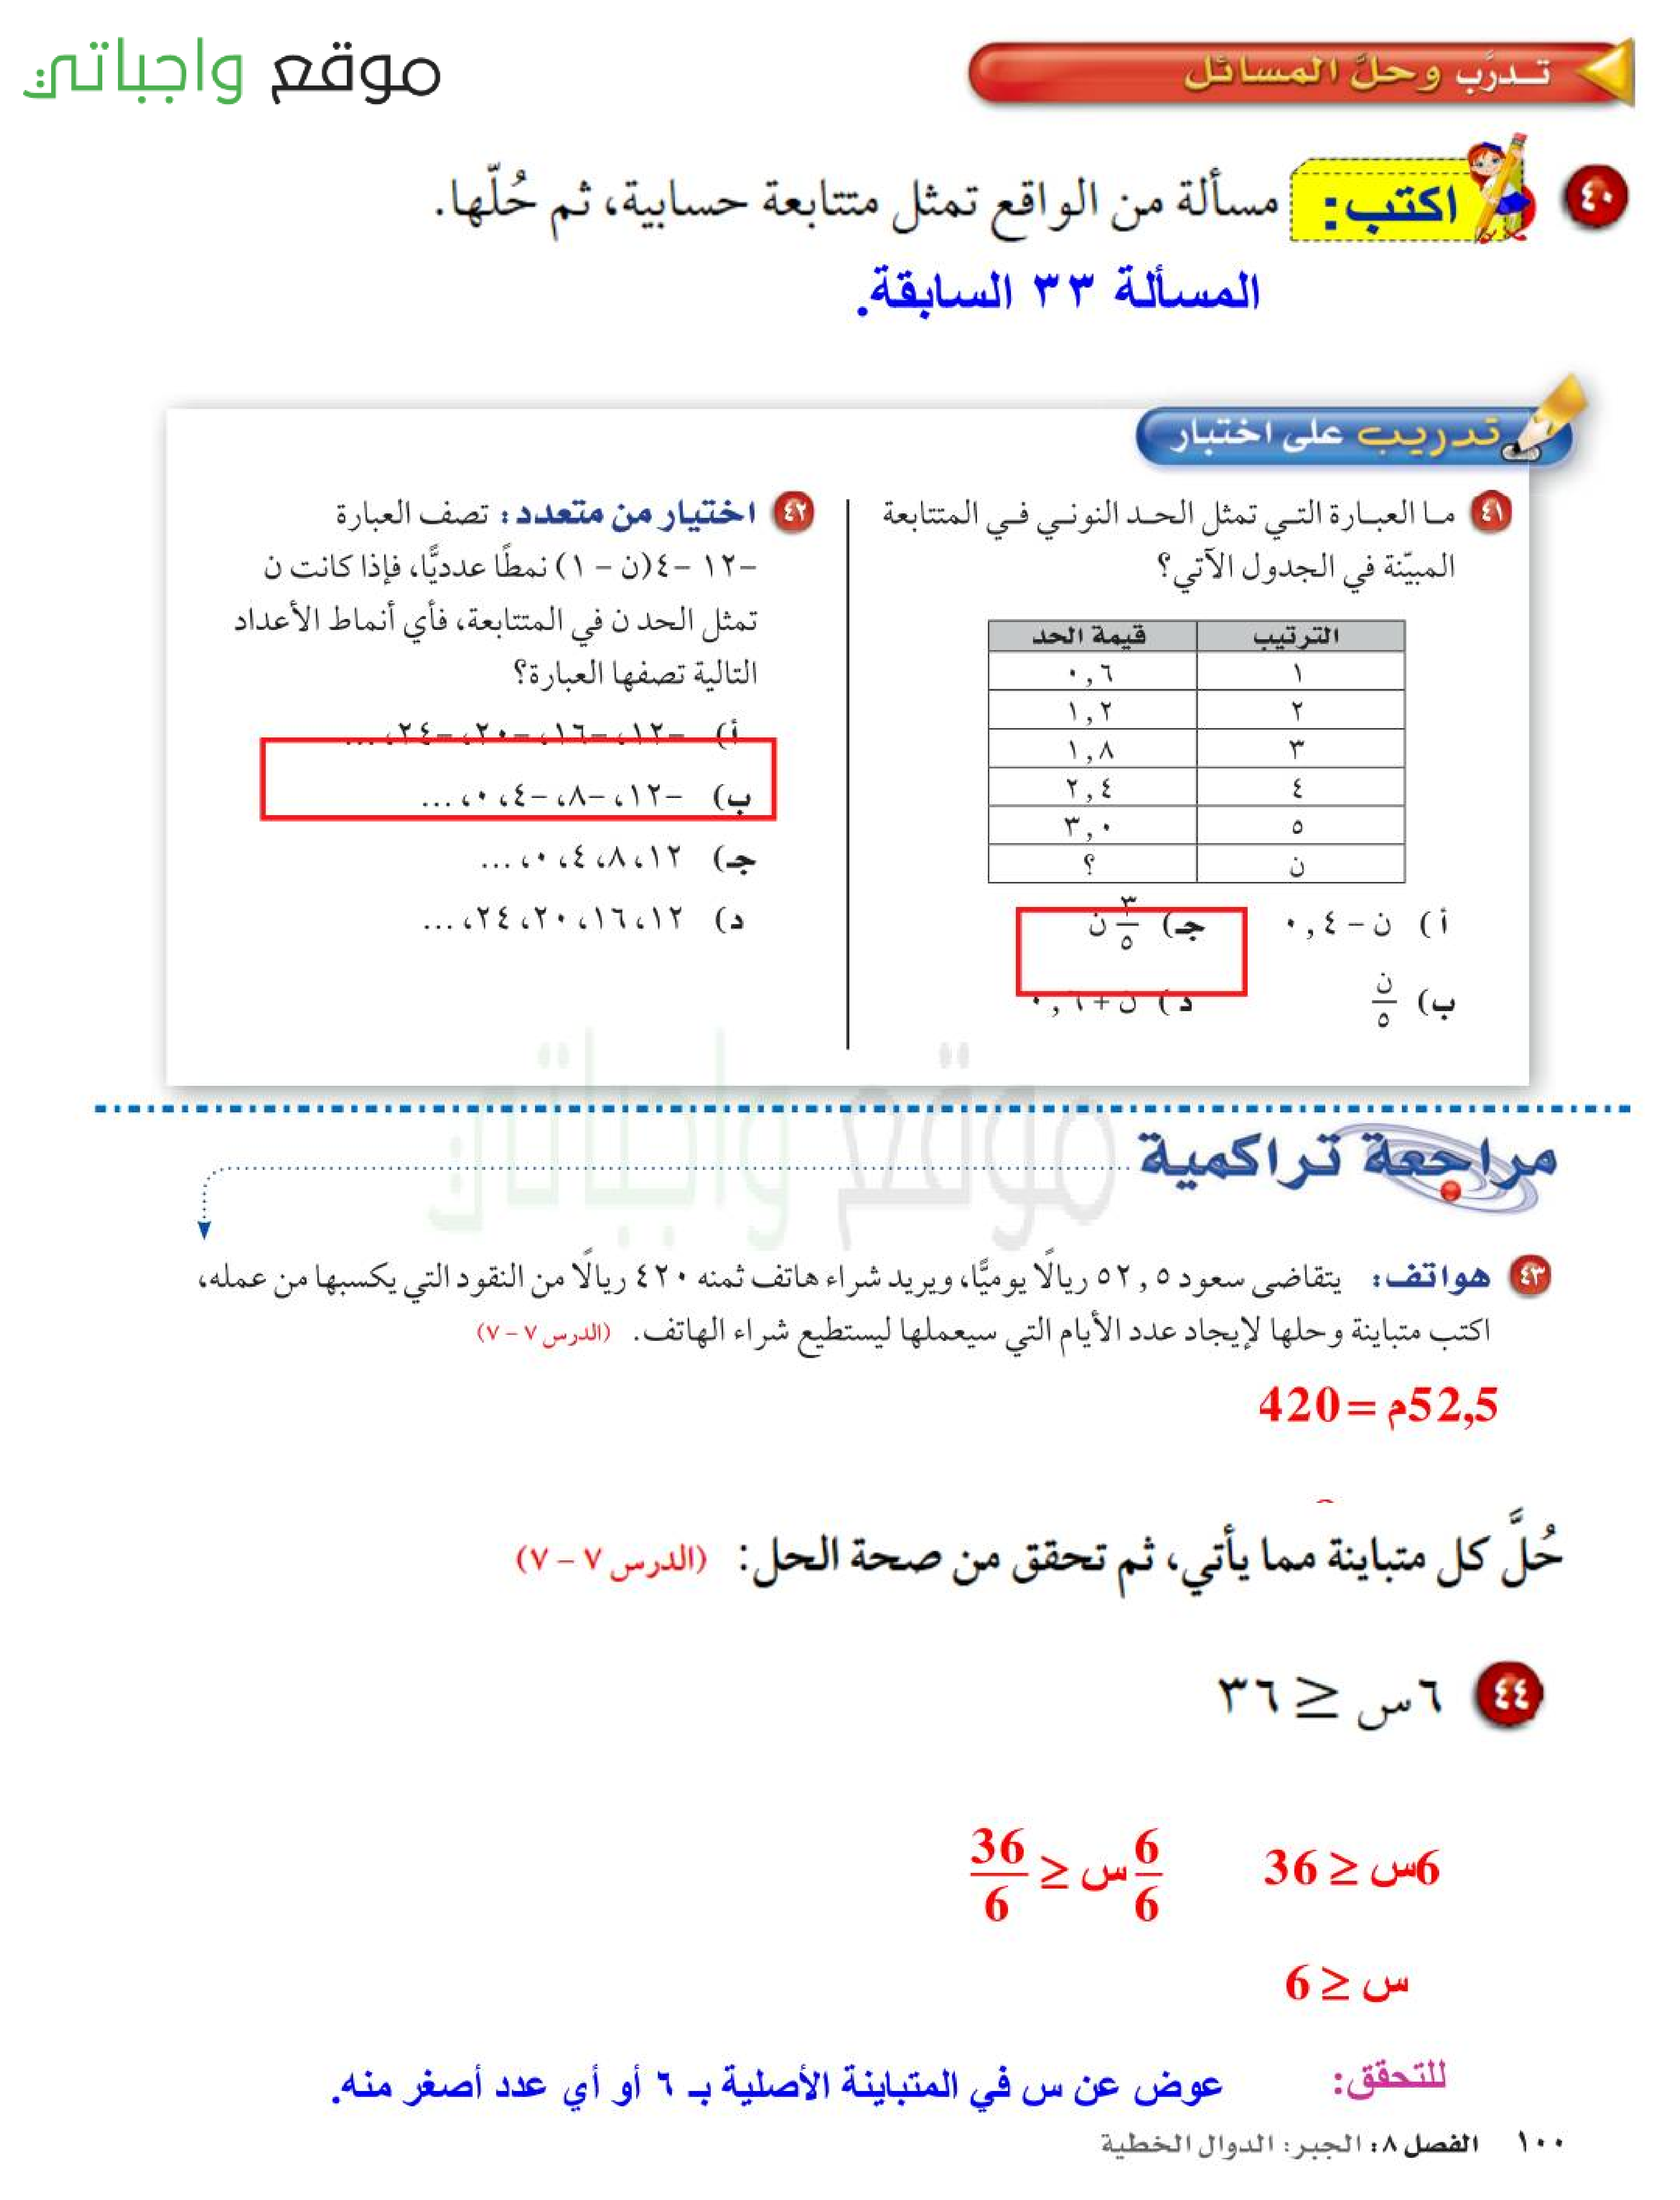 موقع واجباتي
تـدرَّب وحلَّ المسائل
٤٠ اكتب: مسألة من الواقع تمثل متتابعة حسابية، ثم حُلّها.
المسألة ٣٣ السابقة.
تدريب على اختبار
٤١ مـا العبـارة التـي تمثل الحـد النونـي فـي المتتابعة
المبيّنة في الجدول الآتي؟
الترتيب قيمة الحد
١ ٠,٦
٢ ١,٢
٣ ١,٨
٤ ٢,٤
٥ ٣,٠
ن ؟
أ) ن − ٠,٤ جـ) ٣/٥ ن
ب) ن/٥ د) ن + ٠,٦
٤٢ اختيار من متعدد: تصف العبارة
−١٢ −٤(ن − ١) نمطًا عدديًّا، فإذا كانت ن
تمثل الحد ن في المتتابعة، فأي أنماط الأعداد
التالية تصفها العبارة؟
أ) −١٢، −١٦، −٢٠، −٢٤، ...
ب) −١٢، −٨، −٤، ٠، ...
جـ) ١٢، ٨، ٤، ٠، ...
د) ١٢، ١٦، ٢٠، ٢٤، ...
موقع واجباتي
مراجعة تراكمية
٤٣ هواتف: يتقاضى سعود ٥٢,٥ ريالًا يوميًّا، ويريد شراء هاتف ثمنه ٤٢٠ ريالًا من النقود التي يكسبها من عمله،
اكتب متباينة وحلها لإيجاد عدد الأيام التي سيعملها ليستطيع شراء الهاتف. (الدرس ٧ – ٧)
52,5م = 420
حُلَّ كل متباينة مما يأتي، ثم تحقق من صحة الحل: (الدرس ٧ – ٧)
٤٤ ٦س ≤ ٣٦
6س ≤ 36 6/6 س ≤ 36/6
س ≤ 6
للتحقق: عوض عن س في المتباينة الأصلية بـ ٦ أو أي عدد أصغر منه.
١٠٠ الفصل ٨: الجبر: الدوال الخطية